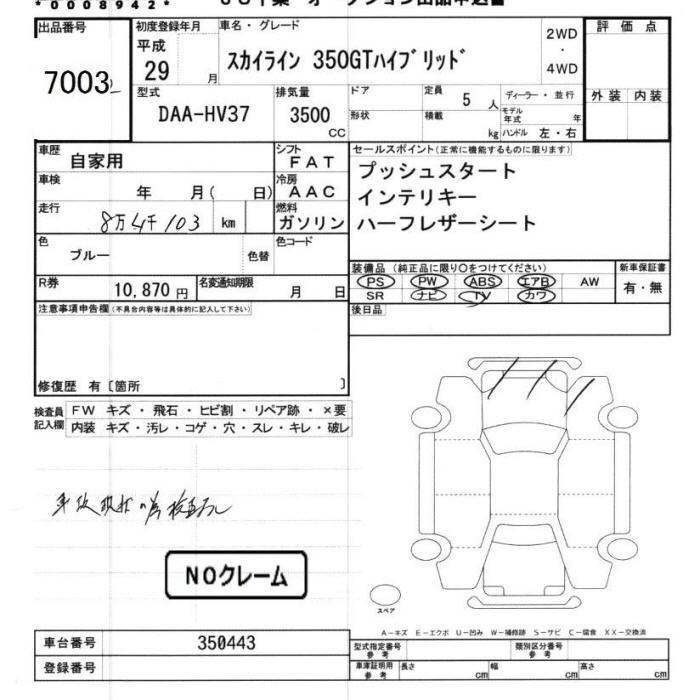 *0008942*
出品番号 初度登録年月 車名・グレード 2WD 評価点
平成 スカイライン 350GTハイブリッド ・
7003 29 月 4WD
型式 排気量 ドア 定員 5 人 ディーラー・並行 外装 内装
DAA-HV37 3500 CC 形状 積載 kg モデル年式 年
ハンドル 左・右
車歴 自家用 シフト FAT セールスポイント(正常に機能するものに限ります)
車検 年 月( 日) 冷房 AAC プッシュスタート
走行 8万4千103 km 燃料 ガソリン インテリキー
色 ブルー 色替 色コード ハーフレザーシート
装備品(純正品に限り○をつけてください) 新車保証書
R券 10,870円 名変通知期限 月 日 PS PW ABS エアB AW 有・無
SR ナビ TV カワ
注意事項申告欄(不具合内容等は具体的に記入して下さい) 後日品
修復歴 有〔箇所 〕
検査員記入欄 FW キズ・飛石・ヒビ割・リペア跡・×要
内装 キズ・汚レ・コゲ・穴・スレ・キレ・破レ
事故現状の為検査なし
NOクレーム
スペア
A-キズ E-エクボ U-凹み W-補修跡 S-サビ C-腐食 XX-交換済
車台番号 350443 型式指定番号 参考 類別区分番号 参考
登録番号 車庫証明用 参考 長さ cm 幅 cm 高さ cm